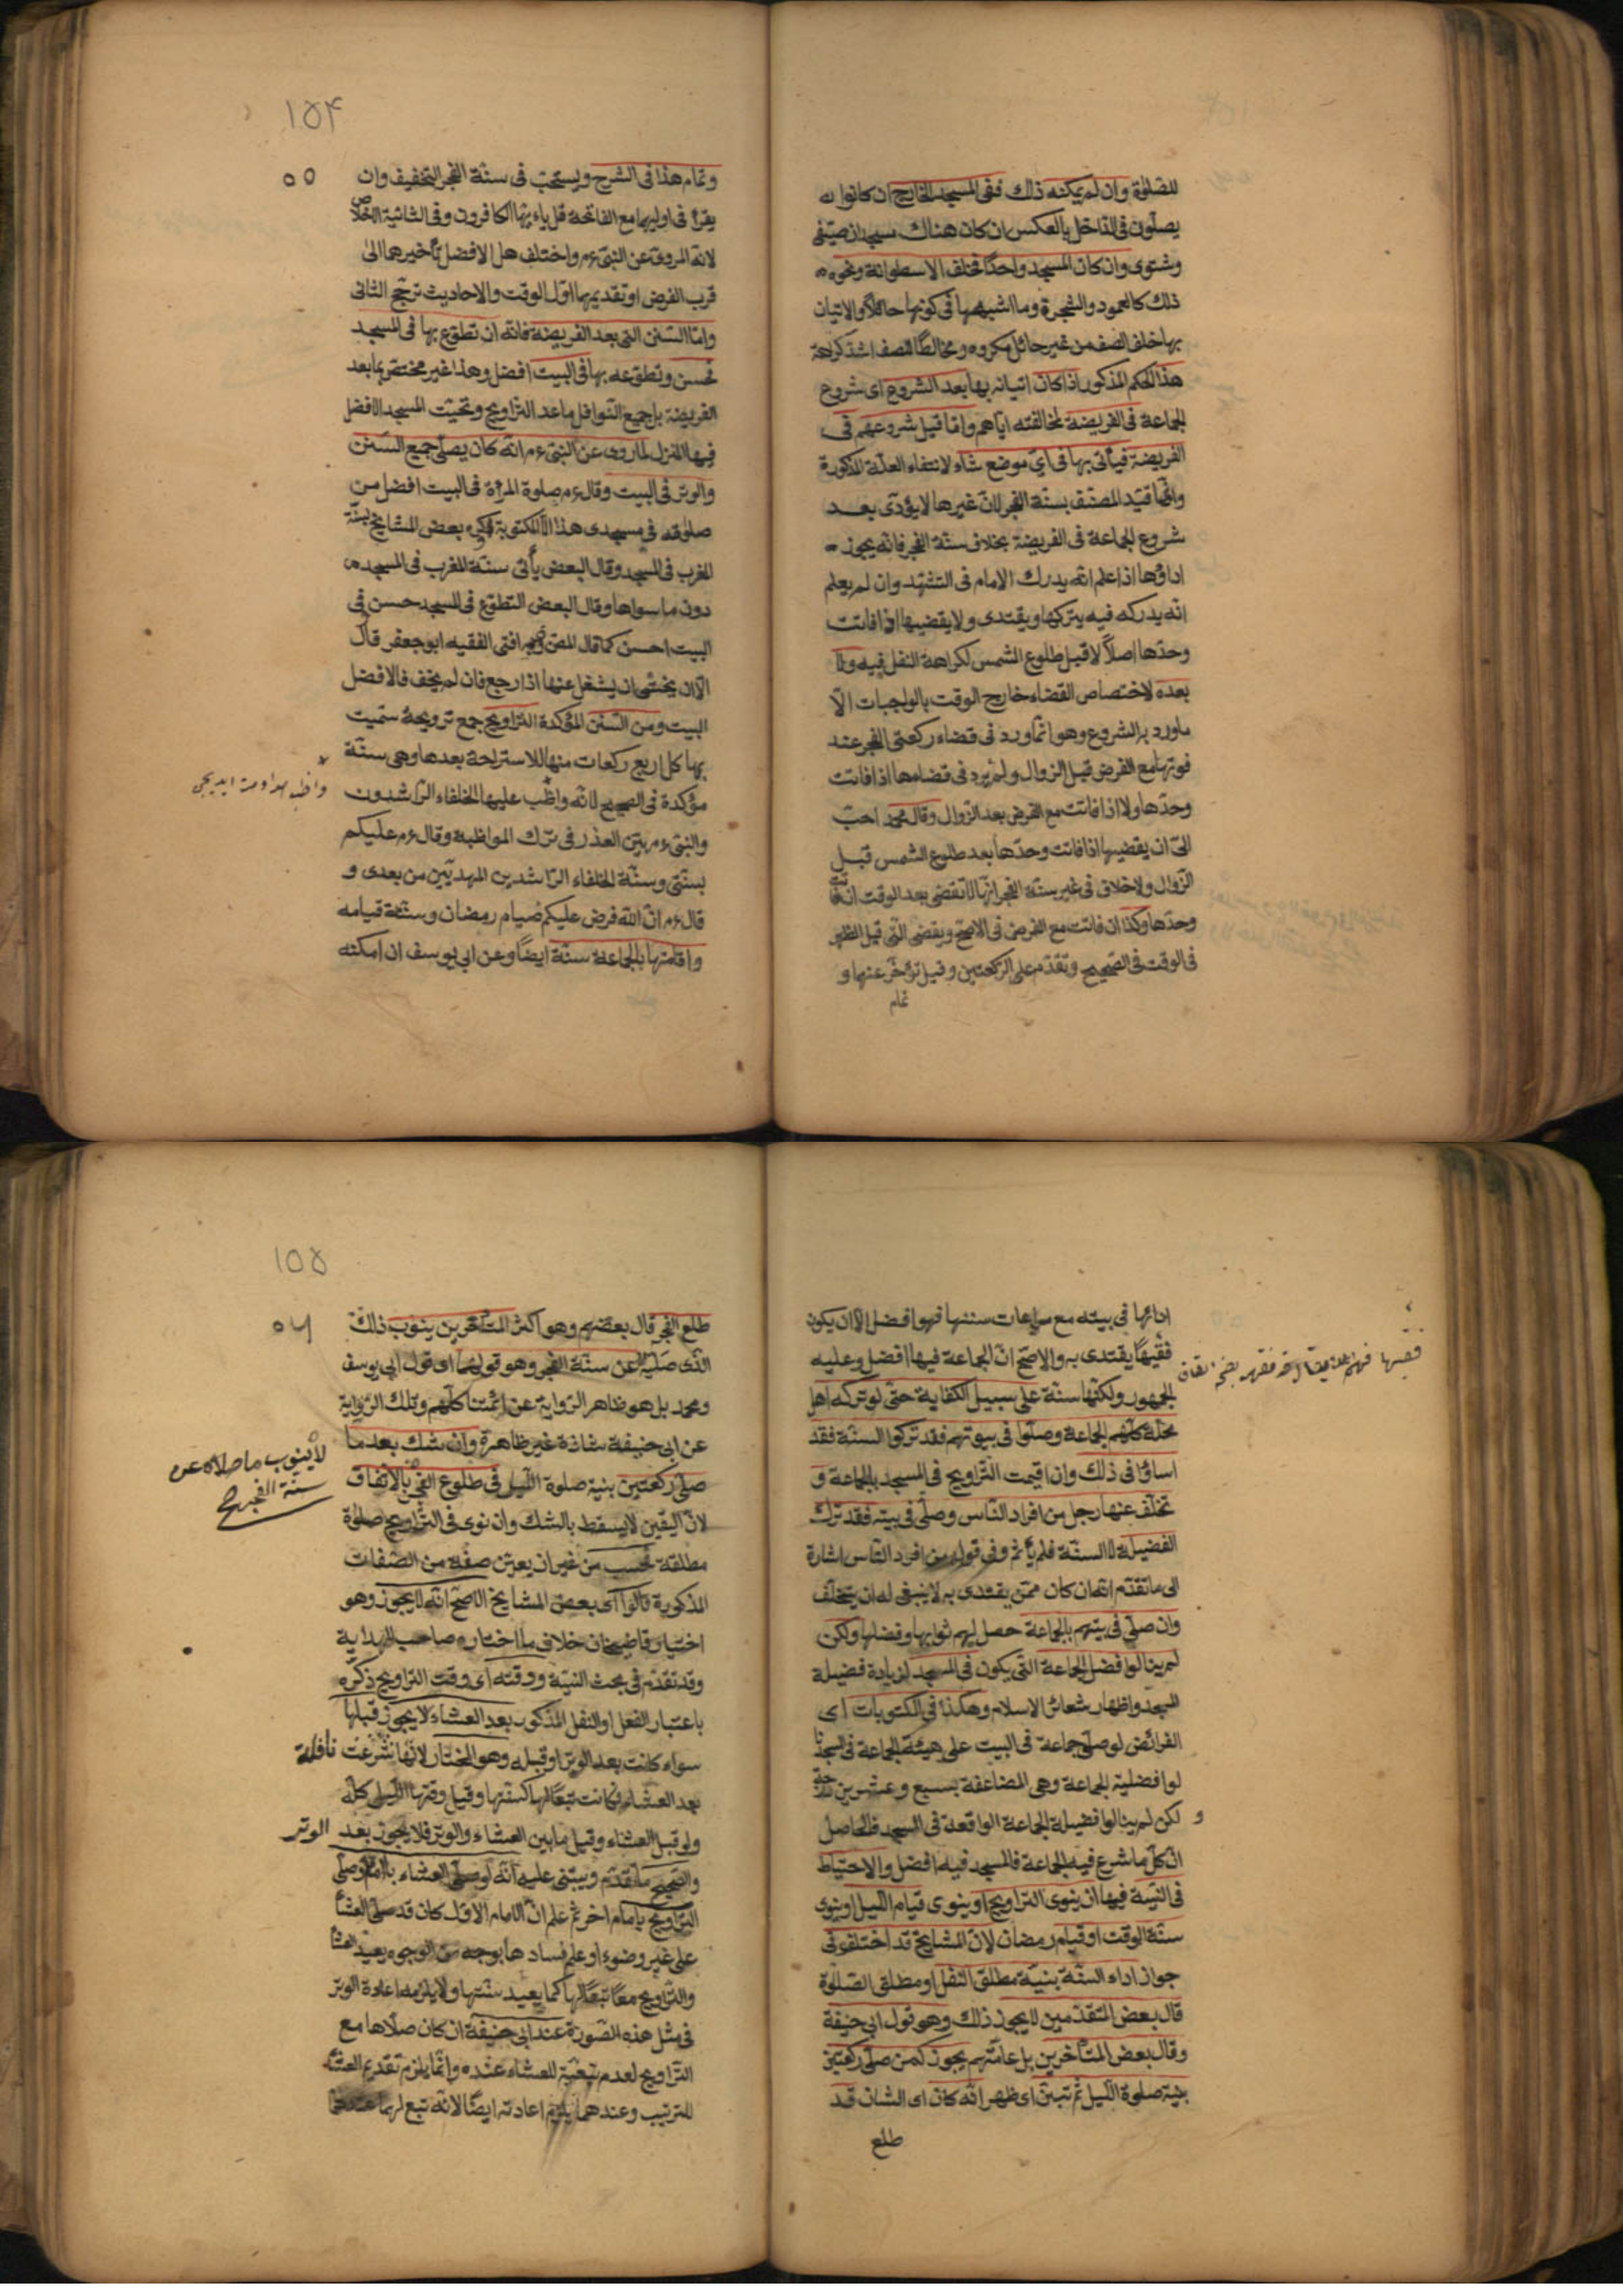 للصلوة وان لم يمكنه ذلك ففى المسجد الخارج ان كانوا
يصلون فى الداخل بالعكس ان كان هناك مسجدان صيفى
وشتوى وان كان المسجد واحدًا فخلف الاسطوانة ونحوه
ذلك كالعمود والشجرة وما اشبههما فى كونها حائلًا والاتيان
بها خلف الصف من غير حائل مكروه ومخالطًا للصف اشد كراهة
هذا الحكم المذكور اذا كان اتيانه بها بعد الشروع اى شروع
الجماعة فى الفريضة لمخالفته اياهم واما قبل شروعهم فى
الفريضة فيأتى بها فى اىّ موضع شاء لانتفاء العلة المذكورة
وانما قيّد المصنف بسنة الفجر لانّ غيرها لا يؤدّى بعد
شروع الجماعة فى الفريضة بخلاف سنة الفجر فانه يجوز
اداؤها اذا علم انه يدرك الامام فى التشهد وان لم يعلم
انه يدركه فيه يتركها ويقتدى ولا يقضيها اذا فاتت
وحدها اصلًا لا قبل طلوع الشمس لكراهة النفل فيه ولا
بعده لاختصاص القضاء خارج الوقت بالواجبات الّا
ما ورد به الشروع وهو انما ورد فى قضاء ركعتى الفجر عند
فوتها مع الفرض قبل الزوال ولم يرد فى قضاءها اذا فاتت
وحدها ولا اذا فاتت مع الفرض بعد الزوال وقال محمد احب
الىّ ان يقضيها اذا فاتت وحدها بعد طلوع الشمس قبل
الزوال ولا خلاف فى غير سنة الفجر انها لا تقضى بعد الوقت ان فاتت
وحدها وكذا ان فاتت مع الفرض فى الاصح ويقضى التى قبل الظهر
فى الوقت فى الصحيح وتقدم على الركعتين وقيل تؤخر عنها و
تمام
١٥٤
٥٥
وتمام هذا فى الشرح ويستحب فى سنة الفجر التخفيف وان
يقرأ فى اوليهما مع الفاتحة قل يا ايها الكافرون وفى الثانية الاخلاص
لانه المروى عن النبى ءم واختلف هل الافضل تأخيرهما الى
قرب الفرض او تقديمهما اول الوقت والاحاديث ترجح الثانى
واما السنن التى بعد الفريضة فانه ان تطوع بها فى المسجد
فحسن وتطوعه بها فى البيت افضل وهذا غير مختص بما بعد
الفريضة بل جميع النوافل ما عدا التراويح وتحيت المسجد الافضل
فيها المنزل لما روى عن النبى ءم انه كان يصلى جميع السنن
والوتر فى البيت وقال ءم صلوة المرأة فى البيت افضل من
صلوته فى مسجدى هذا الا المكتوبة بعض المشايخ سنة
المغرب فى المسجد وقال البعض يأتى سنة المغرب فى المسجد
دون ما سواها وقال البعض التطوع فى المسجد حسن فى
البيت احسن كما قال المص وبه افتى الفقيه ابو جعفر قال
الا ان يخشى ان يشغل عنها اذا رجع فان لم يخف فالافضل
البيت ومن السنن المؤكدة التراويح جمع ترويحة سميت
بها كل اربع ركعات منها للاستراحة بعدها وهى سنة
مؤكدة فى الصحيح لانه واظب عليها الخلفاء الراشدون
والنبى ءم بيّن العذر فى ترك المواظبة وقال ءم عليكم
بسنتى وسنة الخلفاء الراشدين المهديين من بعدى و
قال ءم ان الله فرض عليكم صيام رمضان وسنة قيامه
واقامتها بالجماعة سنة ايضًا وعن ابى يوسف ان امكنه
ادائها فى بيته مع مراعات سننها فهو افضل الا ان يكون
فقيهًا يقتدى به والاصح ان الجماعة فيها افضل وعليه
الجمهور ولكنها سنة على سبيل الكفاية حتى لو تركه اهل
محلة كلهم الجماعة وصلوا فى بيوتهم فقد تركوا السنة فقد
اساؤا فى ذلك وان اقيمت التراويح فى المسجد بالجماعة و
تخلف عنها رجل من افراد الناس وصلى فى بيته فقد ترك
الفضيلة لا السنة فلم يأثم وفى قوله من افراد الناس اشارة
الى ما تقدم انه ان كان ممن يقتدى به لا ينبغى له ان يتخلف
وان صلى فى بيتهم بالجماعة حصل لهم ثوابها وفضلها ولكن
لم ينالوا فضل الجماعة التى يكون فى المسجد لزيادة فضيلة
المسجد واظهار شعائر الاسلام وهكذا فى المكتوبات اى
الفرائض لو صلى جماعة فى البيت على هيئة الجماعة فى المسجد نا
لوا فضلية الجماعة وهى المضاعفة بسبع وعشرين درجة
و لكن لم ينالوا فضيلة الجماعة الواقعة فى المسجد فالحاصل
ان كل ما شرع فيه الجماعة فالمسجد فيه افضل والاحتياط
فى النية فيها ان ينوى التراويح او ينوى قيام الليل او ينوى
سنة الوقت او قيام رمضان لان المشايخ قد اختلفوا فى
جواز اداء السنة بنية مطلق النفل او مطلق الصلوة
قال بعض المتقدمين لا يجوز ذلك وهو قول ابى حنيفة
وقال بعض المتأخرين بل عامتهم يجوز كمن صلى ركعتين
بنية صلوة الليل ثم تبين اى ظهر انه كان اى الشان قد
طلع
١٥٥
٥٦
طلع الفجر قال بعضهم وهو اكثر المتأخرين ينوب ذلك
الذى صليه عن سنة الفجر وهو قولهما اى قول ابى يوسف
ومحمد بل هو ظاهر الرواية عن ائمتنا كلهم وتلك الرواية
عن ابى حنيفة شاذة غير ظاهرة وان شك بعد ما
صلى ركعتين بنية صلوة الليل فى طلوع الفجر بالاتفاق
لا ينوب ما صلاه عن
سنة الفجر صح
لان اليقين لا يسقط بالشك وان نوى فى التراويح صلوة
مطلقة فحسب من غير ان يعين صفة من الصفات
المذكورة قالوا اى بعض المشايخ الاصح انه لا يجوز وهو
اختيار قاضيخان خلاف ما اختاره صاحب الهداية
وقد تقدم فى بحث النية ووقته اى وقت التراويح ذكره
باعتبار الفعل او النفل المذكور بعد العشاء لا يجوز قبلها
سواء كانت بعد الوتر او قبله وهو المختار لانها شرعت نافلة
بعد العشاء فكانت تبعًا لها كسنتها وقيل وقتها الليل كله
ولو قبل العشاء وقيل ما بين العشاء والوتر فلا يجوز بعد الوتر
والصحيح ما تقدم ويبتنى عليه انه لو صلى العشاء بامام وصلى
التراويح بامام اخر ثم علم ان الامام الاول كان قد صلى العشا
على غير وضوء او علم فسادها بوجه من الوجوه يعيد العشا
والتراويح معًا تبعًا لها كما يعيد سنتها ولا يلزمه اعادة الوتر
فى مثل هذه الصورة عند ابى حنيفة ان كان صلاها مع
التراويح لعدم تبعيته للعشاء عنده وانما يلزم تقديم العشاء
للترتيب وعندهما يلزم اعادته ايضًا لانه تبع لها عندهما